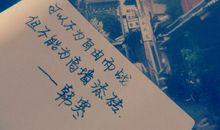 可以不为自由而战
但不能为高墙添砖
——韩寒